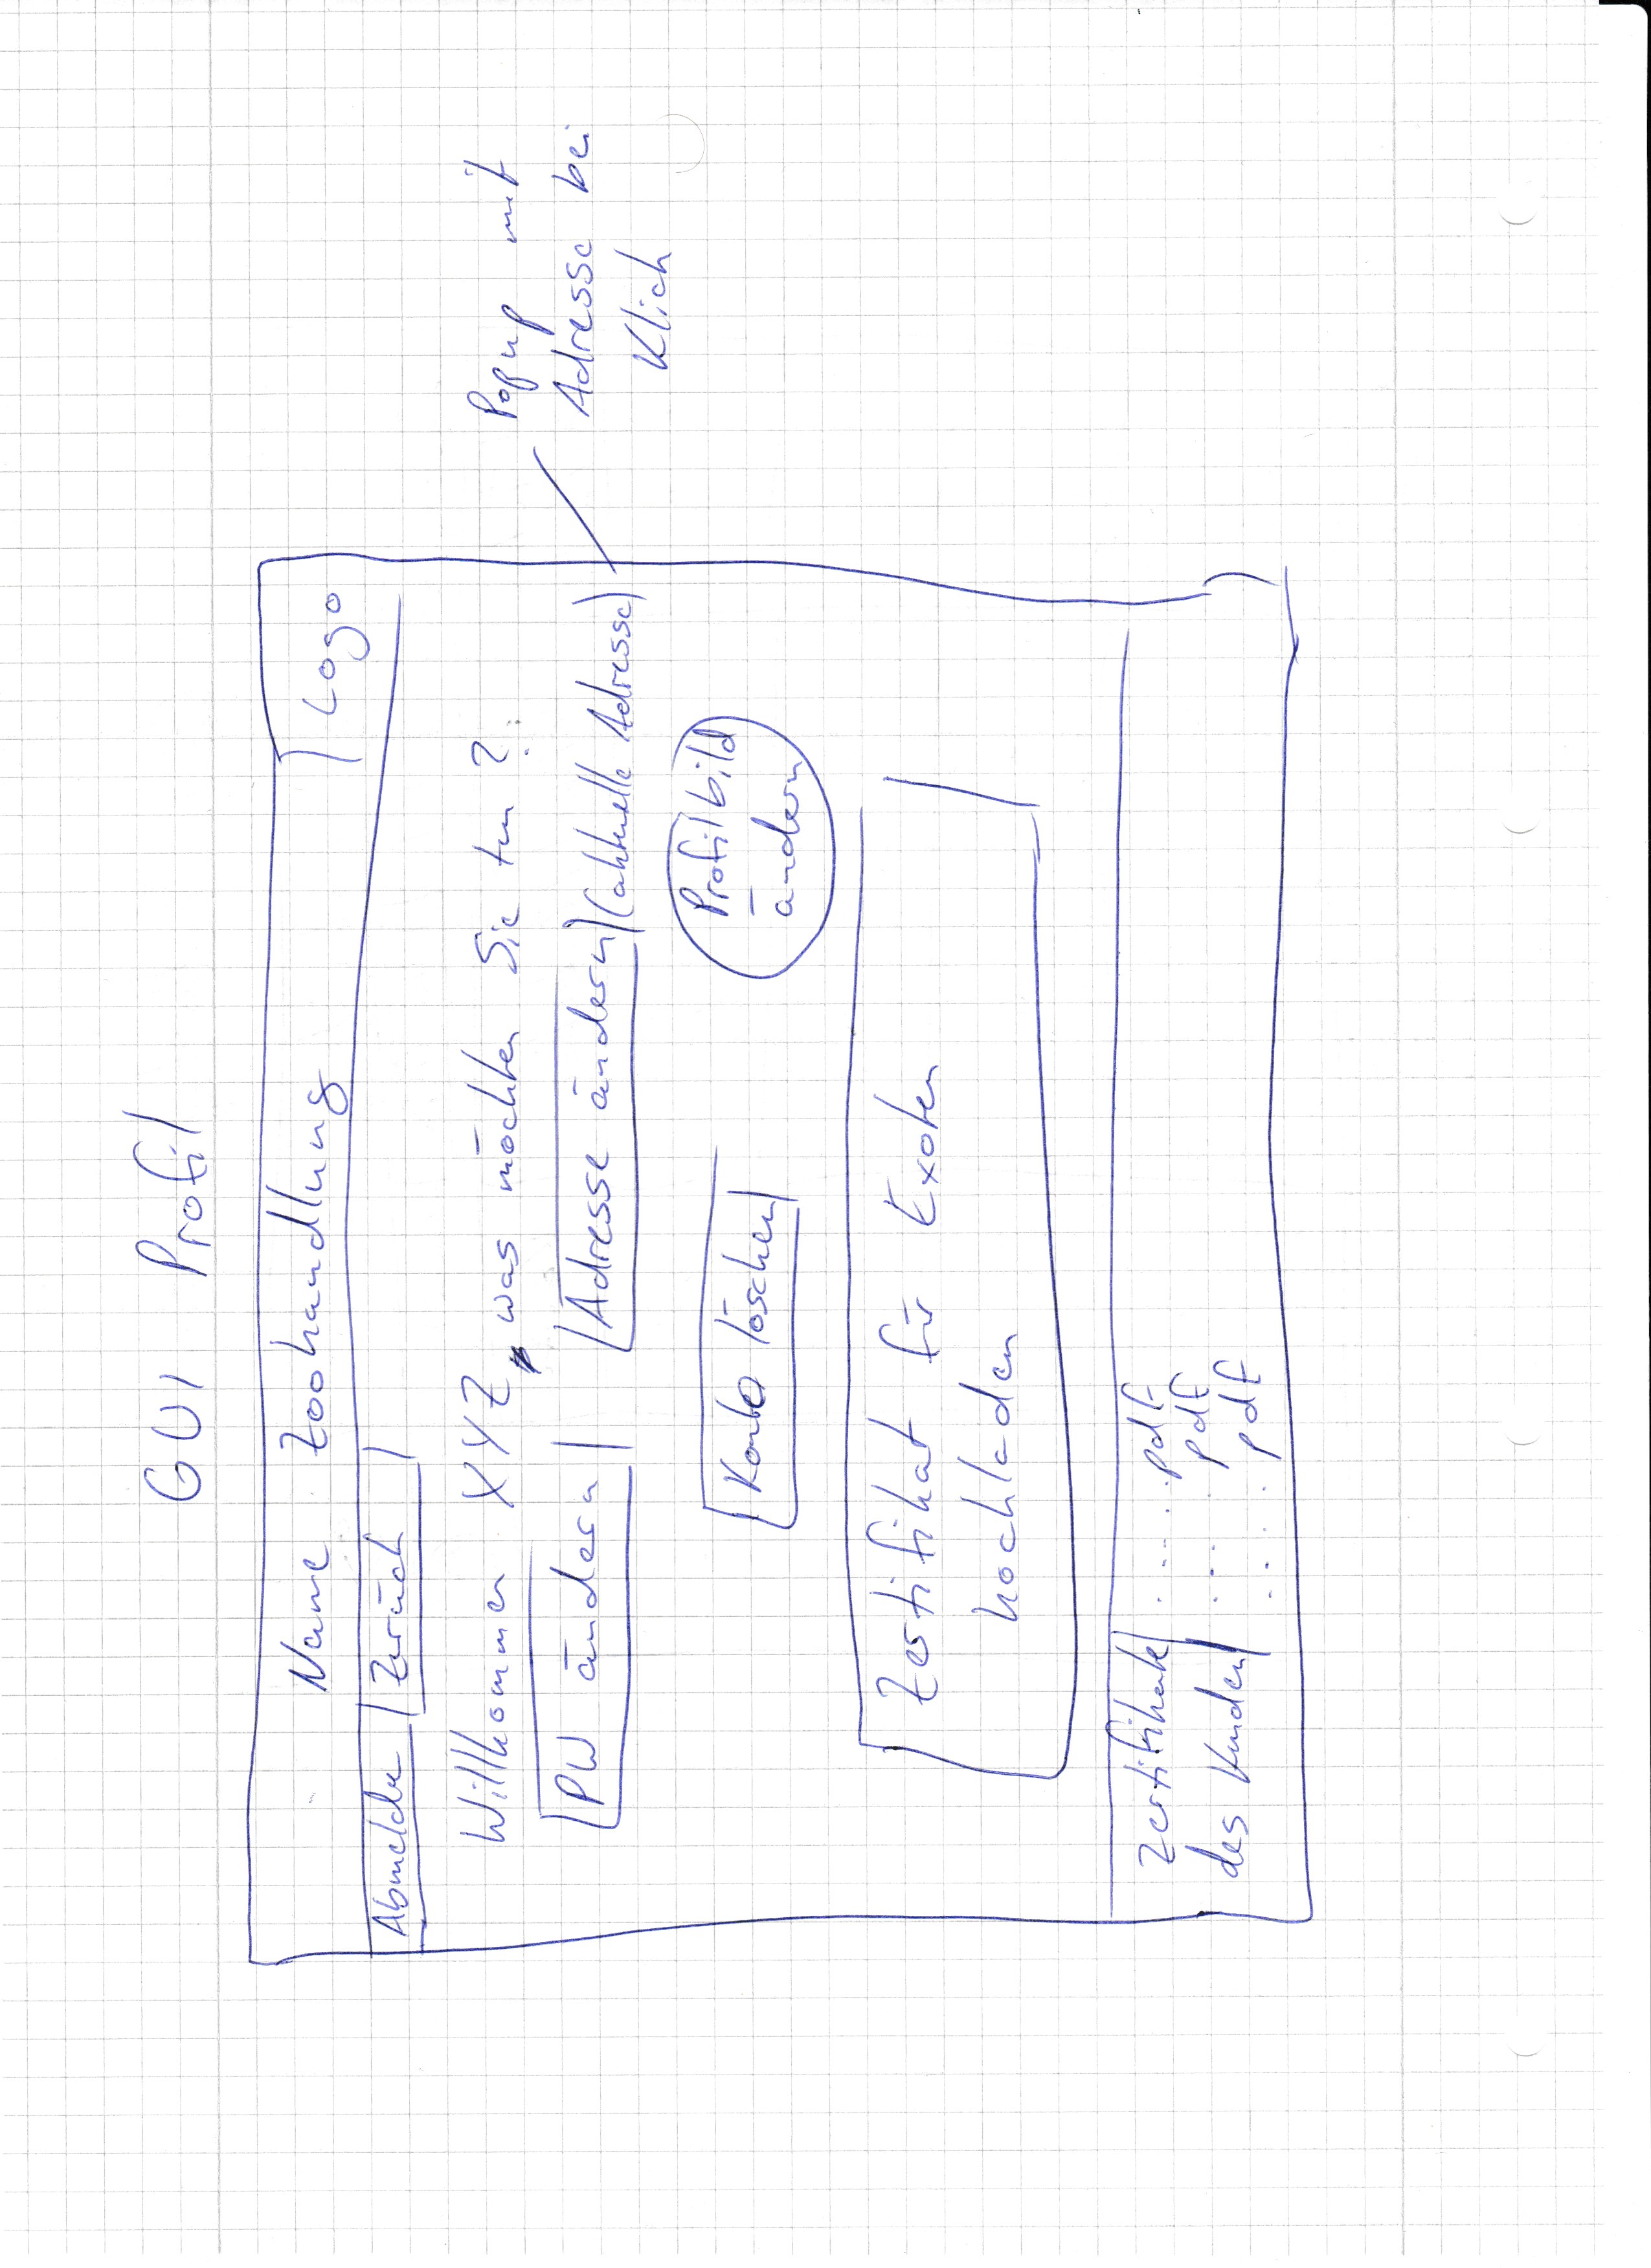 GUI Profil
Name Zoohandlung
Logo
Abmelden
Zurück
Willkommen XYZ, was möchten Sie tun?
PW ändern
Adresse ändern
(aktuelle Adresse)
Popup mit
Adresse bei
Klick
Konto löschen
Profilbild
ändern
Zertifikat für Exoten
hochladen
Zertifikate ..... pdf
des Kunden ... pdf
... pdf